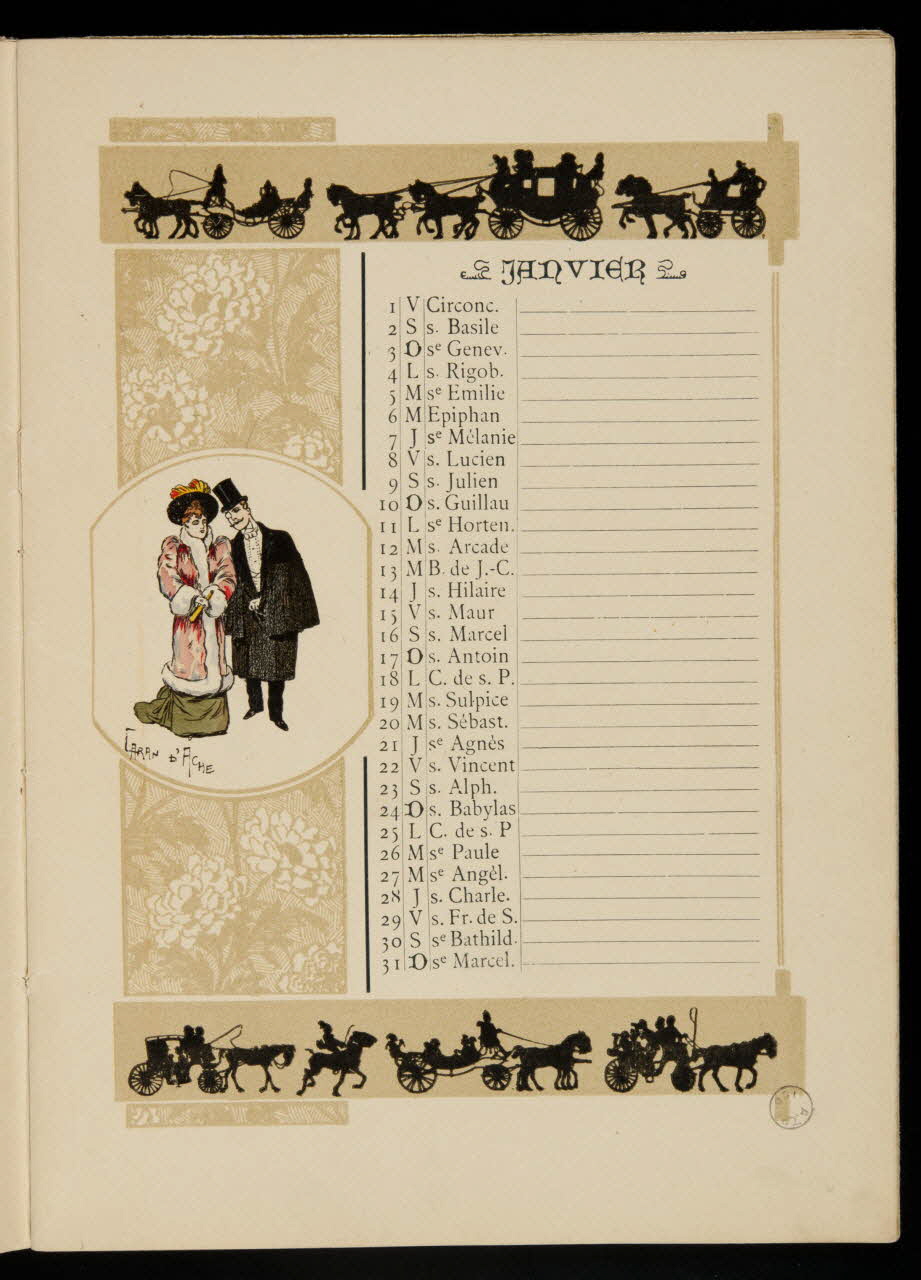 JANVIER
1 V Circonc.
2 S s. Basile
3 D sᵉ Genev.
4 L s. Rigob.
5 M sᵉ Emilie
6 M Epiphan
7 J sᵉ Mélanie
8 V s. Lucien
9 S s. Julien
10 D s. Guillau
11 L sᵉ Horten.
12 M s. Arcade
13 M B. de J.-C.
14 J s. Hilaire
15 V s. Maur
16 S s. Marcel
17 D s. Antoin
18 L C. de s. P.
19 M s. Sulpice
20 M s. Sébast.
21 J sᵉ Agnès
22 V s. Vincent
23 S s. Alph.
24 D s. Babylas
25 L C. de s. P
26 M sᵉ Paule
27 M sᵉ Angèl.
28 J s. Charle.
29 V s. Fr. de S.
30 S sᵉ Bathild.
31 D sᵉ Marcel.
CARAN D'ACHE